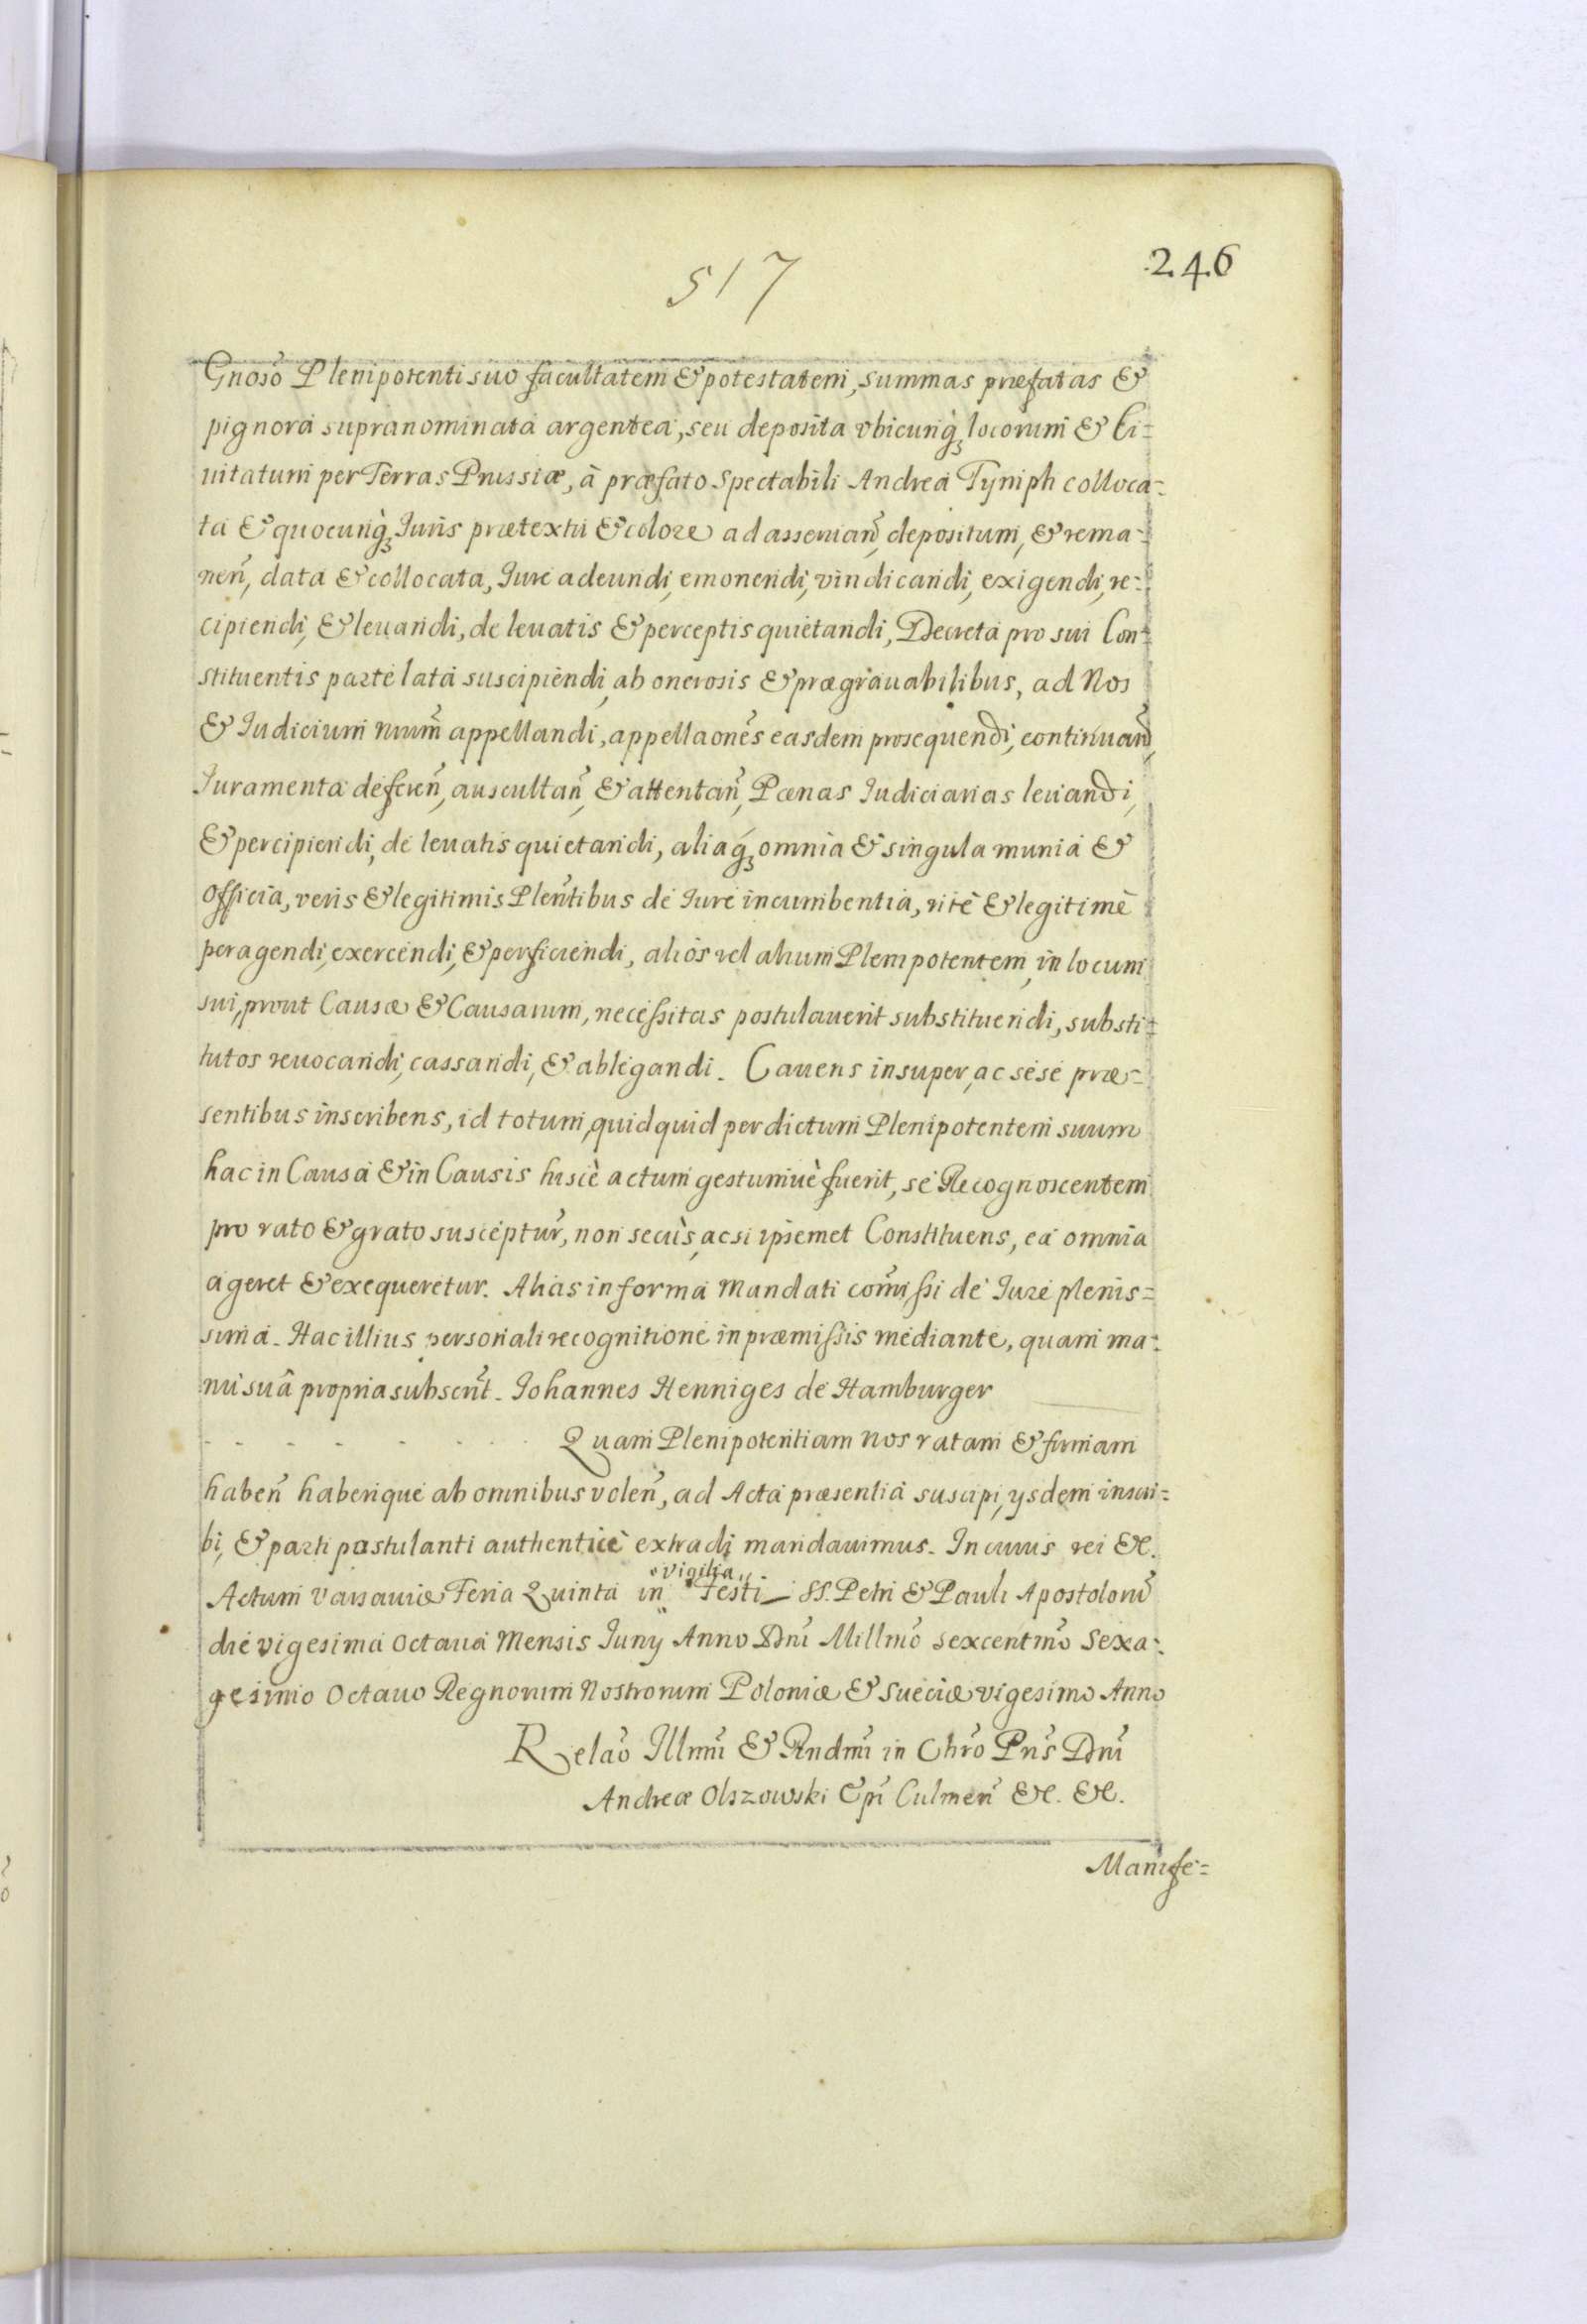 517
246
Gnoso Plenipotenti suo facultatem & potestatem, summas præfatas &
pignora supranominata argentea, seu deposita vbicunq; locorum & Ci=
uitatum per Terras Prussiæ, à præfato Spectabili Andrea Tymph colloca=
ta & quocunq; Iuris prætextu & colore ad asseruan, depositum, & rema=
nen, data & collocata, Iure adeundi, emonendi, vindicandi, exigendi, re=
cipiendi, & leuandi, de leuatis & perceptis quietandi, Decreta pro sui Con=
stituentis parte lata suscipiendi, ab onerosis & prægrauabilibus, ad Nos
& Iudicium nrum appellandi, appellaones easdem prosequendi, continuand,
Iuramenta deferen, auscultan, & attentan, Pænas Iudiciarias leuandi,
& percipiendi, de leuatis quietandi, aliaq; omnia & singula munia &
Officia, veris & legitimis Plentibus de Iure incumbentia, ritè & legitimè
peragendi, exercendi, & perficiendi, alios vel alium Plenipotentem, in locum
sui, prout Causæ & Causarum, necessitas postulauerit substituendi, substi=
tutos reuocandi, cassandi, & ablegandi. Cauens insuper, ac sese præ=
sentibus inscribens, id totum, quidquid per dictum Plenipotentem suum
hac in Causa & in Causis hisce actum gestumuè fuerit, se Recognoscentem
pro rato & grato susceptur, non secùs, ac si ipsemet Constituens, ea omnia
ageret & exequeretur. Alias in forma Mandati comissi de Iure plenis=
sima. Hac illius personali recognitione in præmissis mediante, quam ma=
nu suâ propria subscrit. Iohannes Henniges de Hamburger
Quam Plenipotentiam Nos ratam & firmam
haben haberique ab omnibus volen, ad Acta præsentia suscipi, ysdem inscri=
bi, & parti postulanti authenticè extradi mandauimus. In cuius rei &c.
Actum Varsauiæ Feria Quinta in vigilia Festi SS. Petri & Pauli Apostoloru
die vigesima Octaua Mensis Iuny Anno Dni Millmo sexcentmo Sexa=
gesimo Octauo Regnorum Nostrorum Poloniæ & Sueciæ vigesimo Anno
Relao Illmi & Rndmi in Chro Pris Dni
Andreæ Olszowski Epi Culmen &c. &c.
Manife=